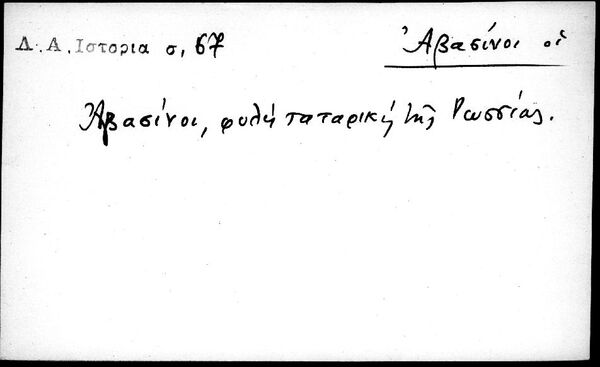 Δ. Α. Ιστορια σ, 67
Ἀβασίνοι οἱ
Ἀβασίνοι, φυλὴ ταταρικὴ τῆς Ρωσσίας.